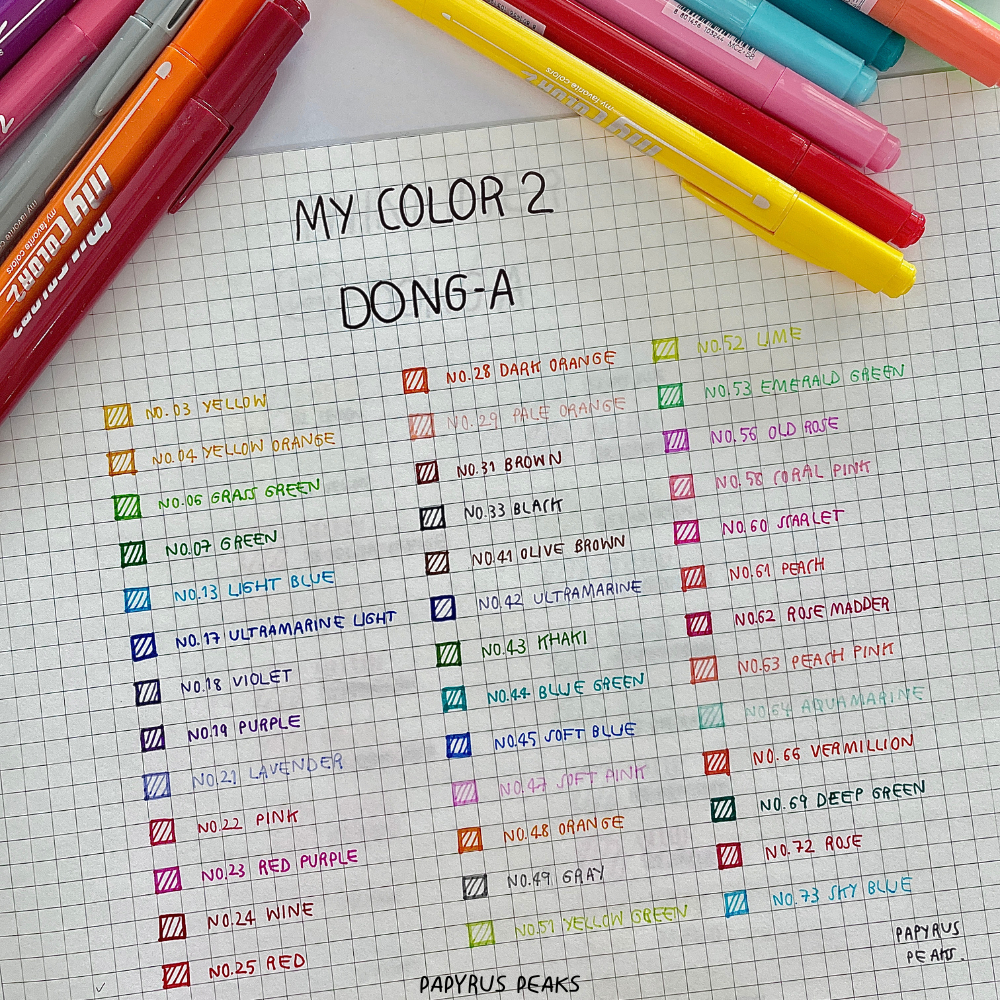 MY COLOR 2
DONG-A
NO.03 YELLOW
NO.04 YELLOW ORANGE
NO.06 GRASS GREEN
NO.07 GREEN
NO.13 LIGHT BLUE
NO.17 ULTRAMARINE LIGHT
NO.18 VIOLET
NO.19 PURPLE
NO.21 LAVENDER
NO.22 PINK
NO.23 RED PURPLE
NO.24 WINE
NO.25 RED
NO.28 DARK ORANGE
NO.29 PALE ORANGE
NO.31 BROWN
NO.33 BLACK
NO.41 OLIVE BROWN
NO.42 ULTRAMARINE
NO.43 KHAKI
NO.44 BLUE GREEN
NO.45 SOFT BLUE
NO.47 SOFT PINK
NO.48 ORANGE
NO.49 GRAY
NO.51 YELLOW GREEN
NO.52 LIME
NO.53 EMERALD GREEN
NO.56 OLD ROSE
NO.58 CORAL PINK
NO.60 SCARLET
NO.61 PEACH
NO.62 ROSE MADDER
NO.63 PEACH PINK
NO.64 AQUAMARINE
NO.66 VERMILLION
NO.69 DEEP GREEN
NO.72 ROSE
NO.73 SKY BLUE
PAPYRUS
PEAKS.
PAPYRUS PEAKS
my COLOR2
my favorite colors
my COLOR2
my favorite colors